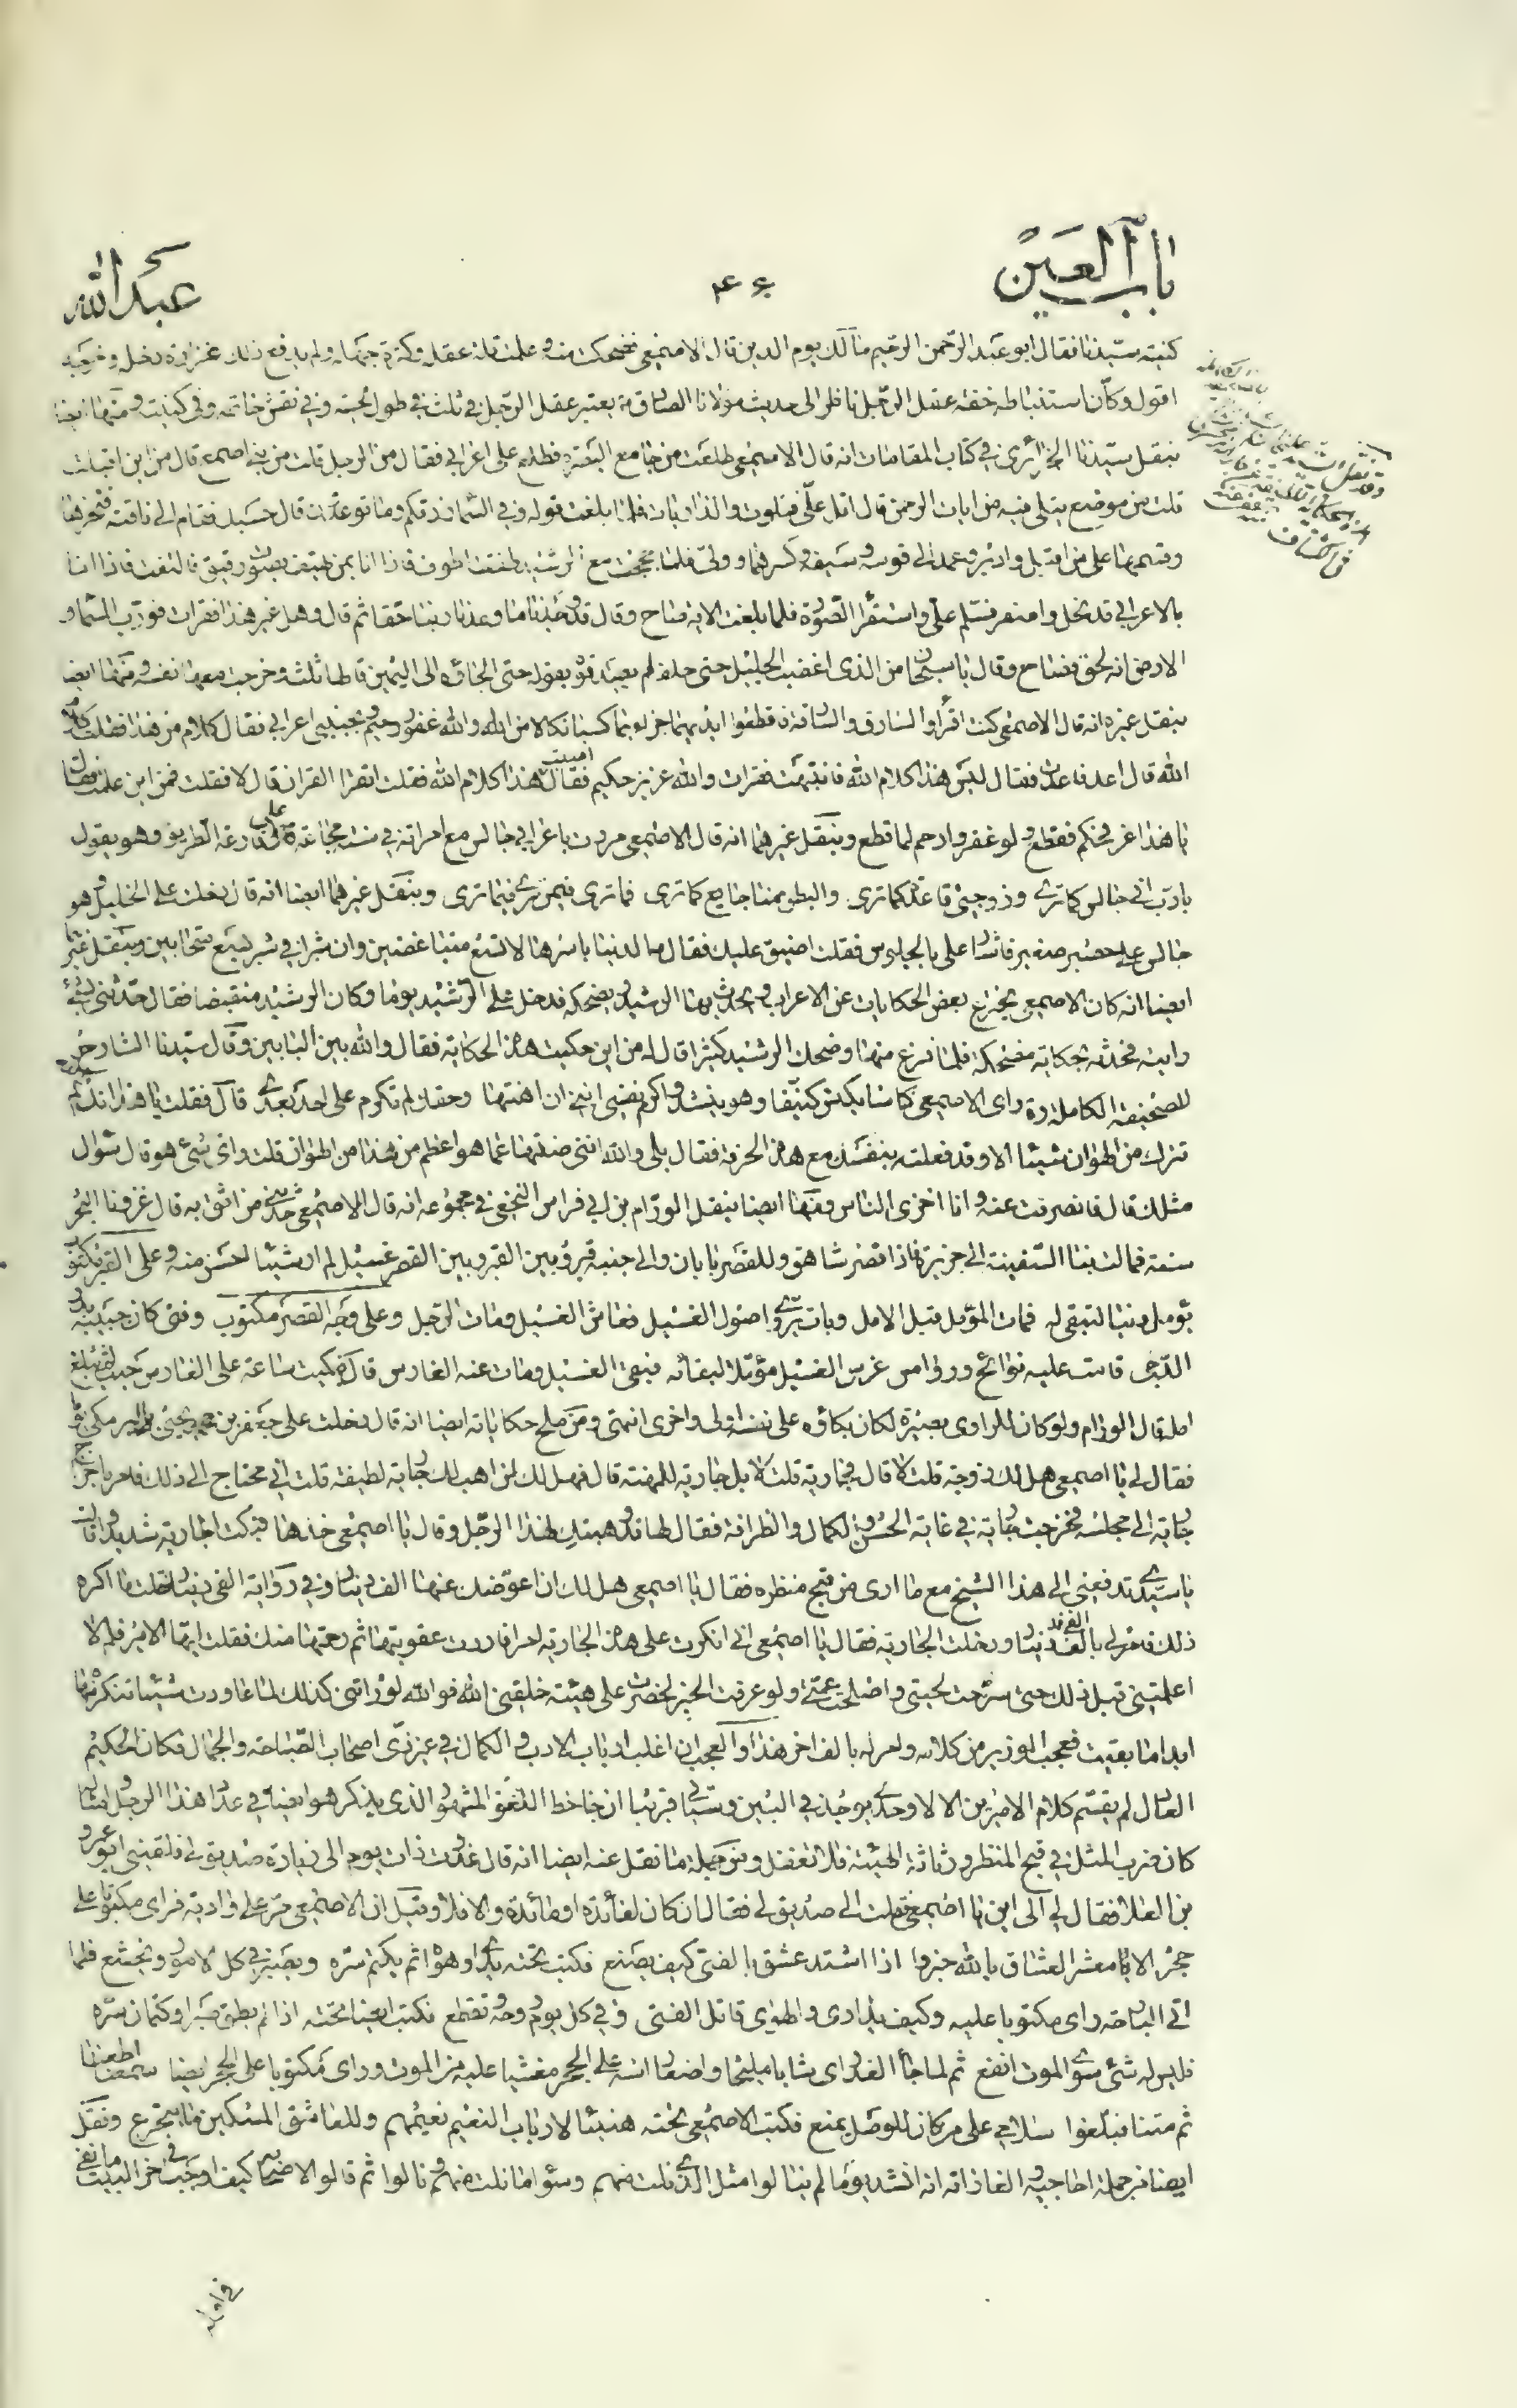 باب العين
۴۶۰
عبد الله
كنيته سيّدنا فقال ابو عبد الرّحمن الرحيم مالك يوم الدين قال الاصمعي فضحكت منه و علمت قلة عقله و كثرة جهله ولم يدفع ذلك غزارة دخل وخرجه
اقول وكان استنباطه خفة عقل الرّجل ناظر الى حديث مولانا الصادق ع يعتبر عقل الرّجل في ثلث في طول لحيته وفي نقش خاتمه وفي كنيته ومنها ايضا
بنقل سيّدنا الجزائري في كتاب المقامات انه قال الاصمعي طلعت من جامع البصرة فطلع علي اعرابي فقال من الرجل قلت من بني اصمع قال من اين اقبلت
قلت من موضع يتلى فيه من ايات الرحمن قال اتل علّي فتلوت والذاريات فلما بلغت قوله وفي السماء رزقكم وما توعدون قال حسبك فقام الى ناقته فنحرها
وقسمها على من اقبل وادبر وعمد الى قوسه وسيفه وكسرهما وولّى فلما حججت مع الرشيد طفقت اطوف فاذا انا بمن يهتف بصوت رقيق فالتفت فاذا انا
بالاعرابي قد نحل واصفر فسلّم علّي واستقرأ السّورة فلما بلغت الاية صاح وقال قد وجدنا ما وعدنا ربنا حقا ثم قال وهل غير هذا فقرات فو ربّ السماء و
الارض انه لحق فصاح وقال يا سبحان من الذى اغضب الجليل حتى حلف لم يصدقوه بقوله حتى الجاؤه الى اليمين قالها ثلثا وخرجت معها نفسه ومنها ايضا
بنقل غيره انه قال الاصمعي كنت اقرأ والسارق والسارقة فاقطعوا ايديهما جزاء بما كسبا نكالا من الله والله غفور رحيم وبجنبي اعرابي فقال كلام من هذا فقلت كلام
الله قال اعد فاعدت فقال ليس هذا كلام الله فانتبهت فقرات والله عزيز حكيم فقال اصبت هذا كلام الله فقلت اتقرا القران قال لا فقلت فمن اين علمت فقال
يا هذا عز فحكم فقطع ولو غفر و رحم لما قطع وبنقل غيرهما انه قال الاصمعي مررت باعرابي جالس مع امراته في سنة مجاعة على قارعة الطريق وهو يقول
يا ربّ اني جالس كما ترى وزوجتي قاعدة كما ترى والبطن منا جايع كما ترى فما ترى فيمن ترى فيما ترى وبنقل غيرهما ايضا انه قال دخلت على الخليل وهو
جالس على حصير صغير فاشار علي بالجلوس فقلت اضيق عليك فقال مه الدنيا باسرها لا تسع متباغضين وان شبرا في شبر يسع متحابين وبنقل غيرها
ايضا انه كان الاصمعي يخترع بعض الحكايات عن الاعراب ويحدث بها الرشيد ويضحكه فدخل على الرّشيد يوما وكان الرشيد منقبضا فقال حدّثني بشئ
رايته فحدثه بحكاية مضحكة فلما فرغ منها وضحك الرشيد كثيرا قال له من اين حكيت هذه الحكاية فقال والله بين البابين وقال سيّدنا الشارح
للصحيفة الكاملة ره راى الاصمعي كناسا يكنس كنيفا وهو ينشد واكرم نفسي انني ان اهنتها وحقك لم تكرم على احد بعدى قال فقلت يا هذا انك لم
تترك من الهوان شيئا الا وقد فعلته بنفسك مع هذه الحرفة فقال بلى والله انني صنتها عما هو اعظم من هذا من الهوان قلت واى شئ هو قال سؤال
مثلك قال فانصرفت عنه وانا اخزى الناس ومنها ايضا بنقل الورّام بن ابي فراس النخعي في مجموعه انه قال الاصمعي حدثني من اثق به قال غزونا البحر
سنة فمالت بنا السّفينة الى جزيرة فاذا قصر شاهق وللقصر بابان والى جنبه قبر وبين القبر وبين القصر غسيل لم ار شيئا احسن منه وعلى القبر مكتوب
يؤمل دنيا لتبقى له فمات المؤمل قبل الامل وبات يروّى اصول الفسيل فعاش الفسيل ومات الرّجل وعلى وجه القصر مكتوب وفتى كان جبينه بدر
الدّجى قامت عليه نوائح وروامس غرس الفسيل مؤمّلا لبقائه فبقى الفسيل ومات عنه الغارس قال فبكيت ساعة على الغارس حيث لم يبلغ
امله قال الورّام ولو كان للراوى بصيرة لكان بكاؤه على نفسه اولى واحرى انتهى ومن ملح حكاياته ايضا انه قال دخلت على جعفر بن يحيى البرمكي يوما
فقال لي يا اصمعي هل لك زوجة قلت لا قال فجارية قلت لا بل جارية للمهنة قال فهل لك ان اهب لك جارية لطيفة قلت اني محتاج الى ذلك فامر باخراج
جارية الى مجلسه فخرجت جارية في غاية الحسن والكمال والظرافة فقال لها قد وهبتك لهذا الرّجل وقال يا اصمعي خذها فبكت الجارية شديدا وقالت
يا سيّدي تدفعني الى هذا الشيخ مع ما ارى من قبح منظره فقال يا اصمعي هل لك ان اعوّضك عنها الف دينار وفي رواية الفي دينار قلت ما اكره
ذلك فامر لي بالف دينار ودخلت الجارية فقال يا اصمعي اني انكرت على هذه الجارية امرا فاردت عقوبتها ثم رحمتها منك فقلت ايها الامير فلم لا
اعلمتني قبل ذلك حتى سرّحت لحيتي واصلحت عمتي ولو عرفت الخبر لحضرت على هيئة خلقني الله فوالله لو راتني كذلك لما عاودت شيئا تنكره منها
ابدا ما بقيت فعجب الوزير من كلامه وامر له بالف اخر هذا والعجب ان اغلب ارباب الادب والكمال في غير زيّ اصحاب الصّباحة والجمال فكان الحكيم
العدل لم يقسّم كلام الامرين الا لاوحدي يوجد في البين وسياتي قريبا ان جاحظ اللّغوى المشهور الذى يذكر هو ايضا في عداد هذا الرجل ايضا
كان ضرب المثل في قبح المنظر ورثاثة الهيئة فلا تغفل ومن جملة ما نقل عنه ايضا انه قال غدوت ذات يوم الى زيارة صديق لي فلقيني ابو عمرو
بن العلاء فقال لي الى اين يا اصمعي فقلت الى صديق لي فقال ان كان لفائدة او مائدة والا فلا وقيل ان الاصمعي مرّ على وادية فراى مكتوبا على
حجر الا يا معشر العشاق بالله خبروا اذا اشتد عشق بالفتى كيف يصنع فكتب تحته يدارى هواه ثم يكتم سّره ويصبر في كل الامور ويخشع فلما
اتى البارحة راى مكتوبا عليه وكيف يدارى والهوى قاتل الفتى وفي كل يوم روحه تقطع فكتب ايضا تحته اذا لم يطق صبرا وكتمان سّره
فليس له شئ سوى الموت انفع ثم لما جاء الغد راى شابا مليحا واضعا راسه على الحجر مغشيا عليه من الموت وراى مكتوبا على الحجر ايضا سمعنا اطعنا
ثم متنا فبلّغوا سلامي على من كان للوصل يمنع فكتب الاصمعي تحته هنيئا لارباب النعيم نعيمهم وللعاشق المسكين ما يتجرع ونقل
ايضا من جملة احاجيه والغازاته انه انشد يوما لم ينالوا مثل الذي نلت منهم وسوٓاء ما نلت منهم ونالوا ثم قالوا لاصحابه كيف اوجب في اخر البيت ما نفى